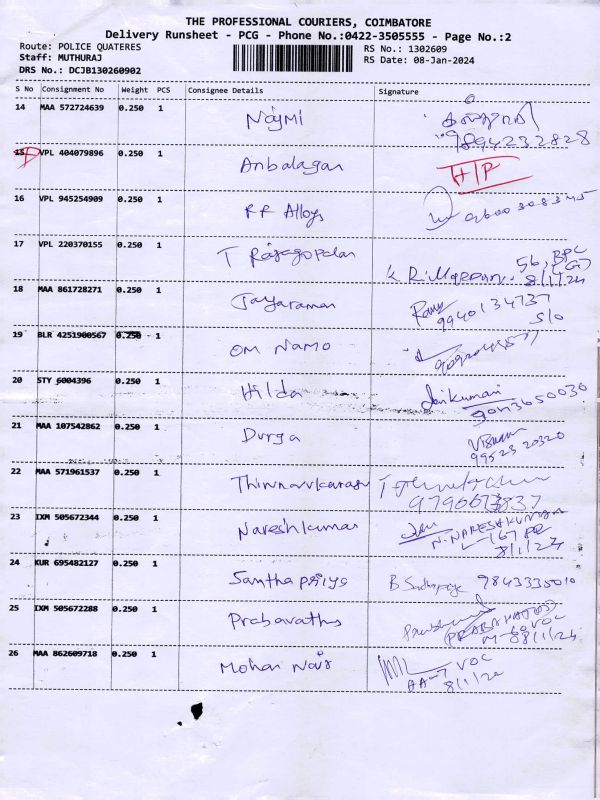 THE PROFESSIONAL COURIERS, COIMBATORE
Delivery Runsheet - PCG - Phone No.:0422-3505555 - Page No.:2
Route: POLICE QUATERES
RS No.: 1302609
Staff: MUTHURAJ
RS Date: 08-Jan-2024
DRS No.: DCJB130260902
S No Consignment No Weight PCS Consignee Details Signature
14 MAA 572724639 0.250 1 Najmi
9894232828
15 VPL 404079896 0.250 1 Anbalagan
16 VPL 945254909 0.250 1 RF Alloys
17 VPL 220370155 0.250 1 T Rajagopalan
56, BPC
8/1/24
18 MAA 861728271 0.250 1 Jayaraman
9940134737
S/O
19 BLR 4251900567 0.250 1 OM Namo
20 STY 6004396 0.250 1 Hilda
21 MAA 107542862 0.250 1 Durga
99523 20320
22 MAA 571961537 0.250 1 Thirunavkarasu
9790673837
23 IXM 505672344 0.250 1 Nareshkumar
N. NARESHKUMAR
8/1/24
24 KUR 695482127 0.250 1 Santhapriya
9843335010
25 IXM 505672288 0.250 1 Prabavathy
08/1/24
26 MAA 862609718 0.250 1 Mohan Nair
AA-7 VOC
8/1/24